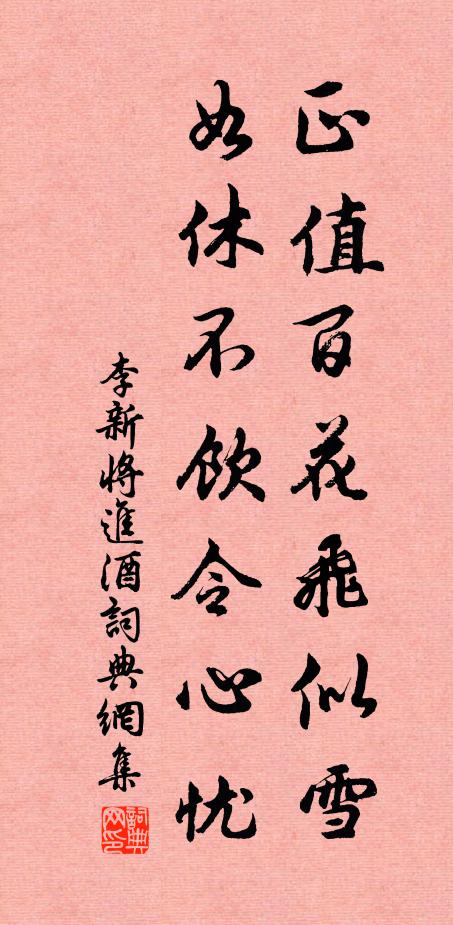 正值百花飛似雪
如休不飲令心忧
李新將進酒詞典網集
詞典网印